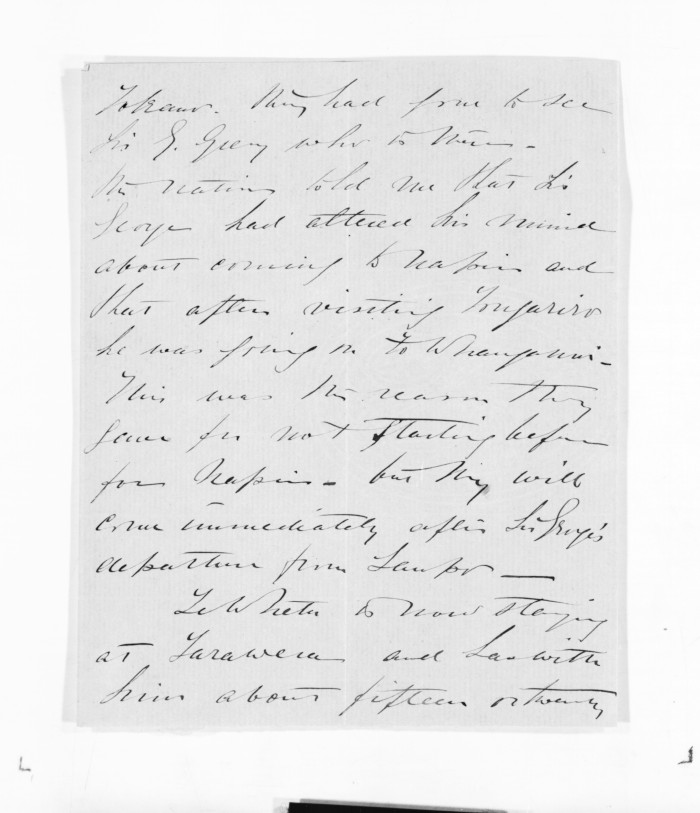 Tokano. They had gone to see
Sir G. Grey who is there -
the natives told me that Sir
George had altered his mind
about coming to Napier and
that after visiting Tongariro
he was going on to Whanganui -
This was the reason they
gave for not starting before
for Napier - but they will
come immediately after Sir George's
departure from Taupo —
Te Wheta is now staying
at Tarawera and has with
him about fifteen or twenty